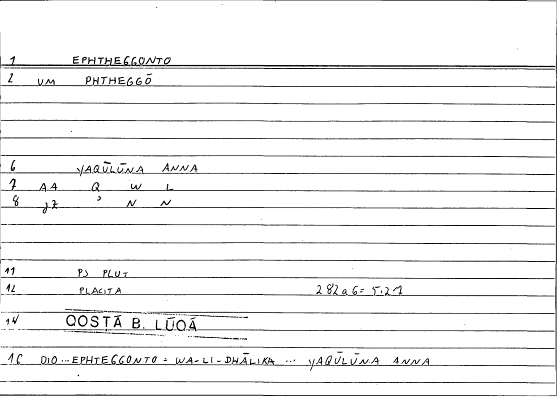 1 EPHTHEGGONTO
2 UM PHTHEGGŌ
6 YAQŪLŪNA ANNA
7 AA Q W L
8 jz ʾ N N
11 PS PLUT
12 PLACITA 282a6 = 5.21
14 QOSṬĀ B. LŪQĀ
16 DIO...EPHTEGGONTO = WA-LI-DHĀLIKA ... YAQŪLŪNA ANNA